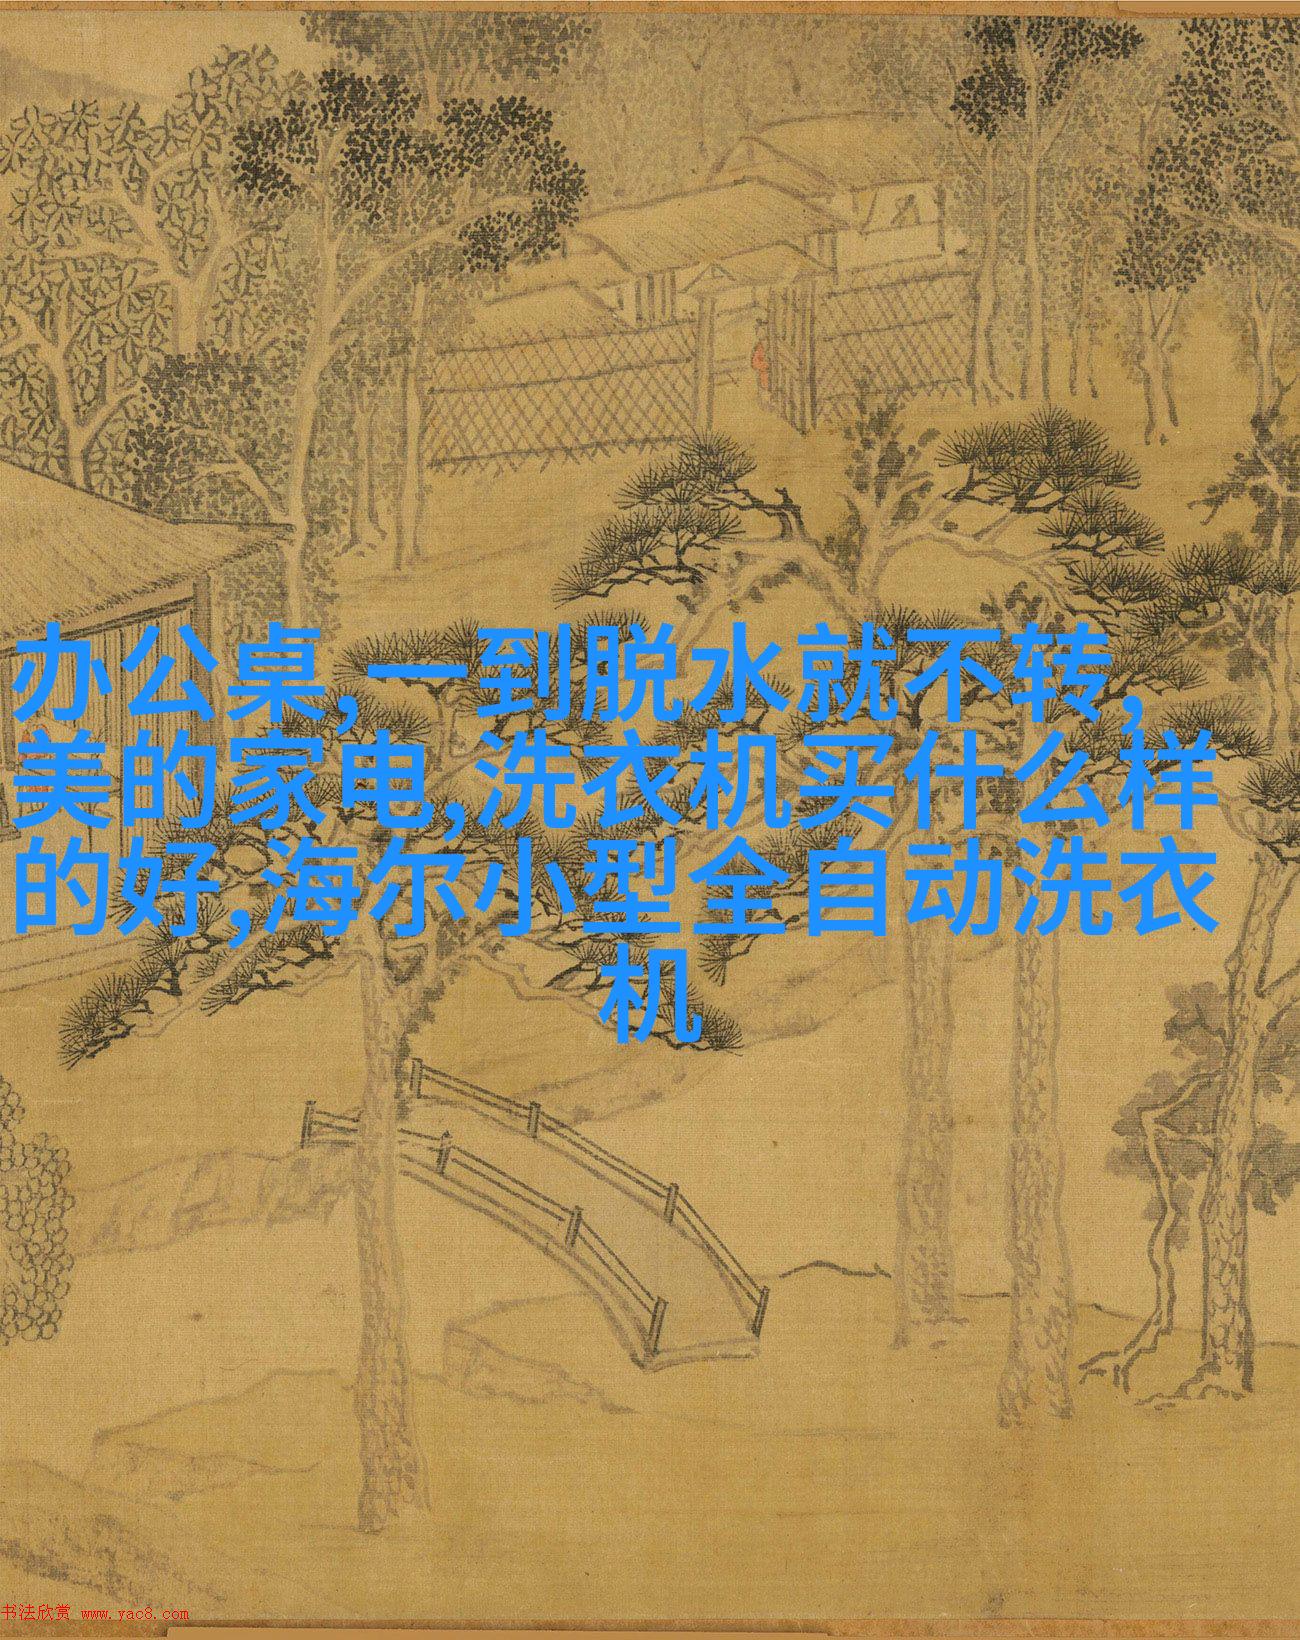 办公桌,一到脱水就不转,
美的家电,洗衣机买什么样
的好,海尔小型全自动洗衣
机
书法欣赏 www.yac8.com